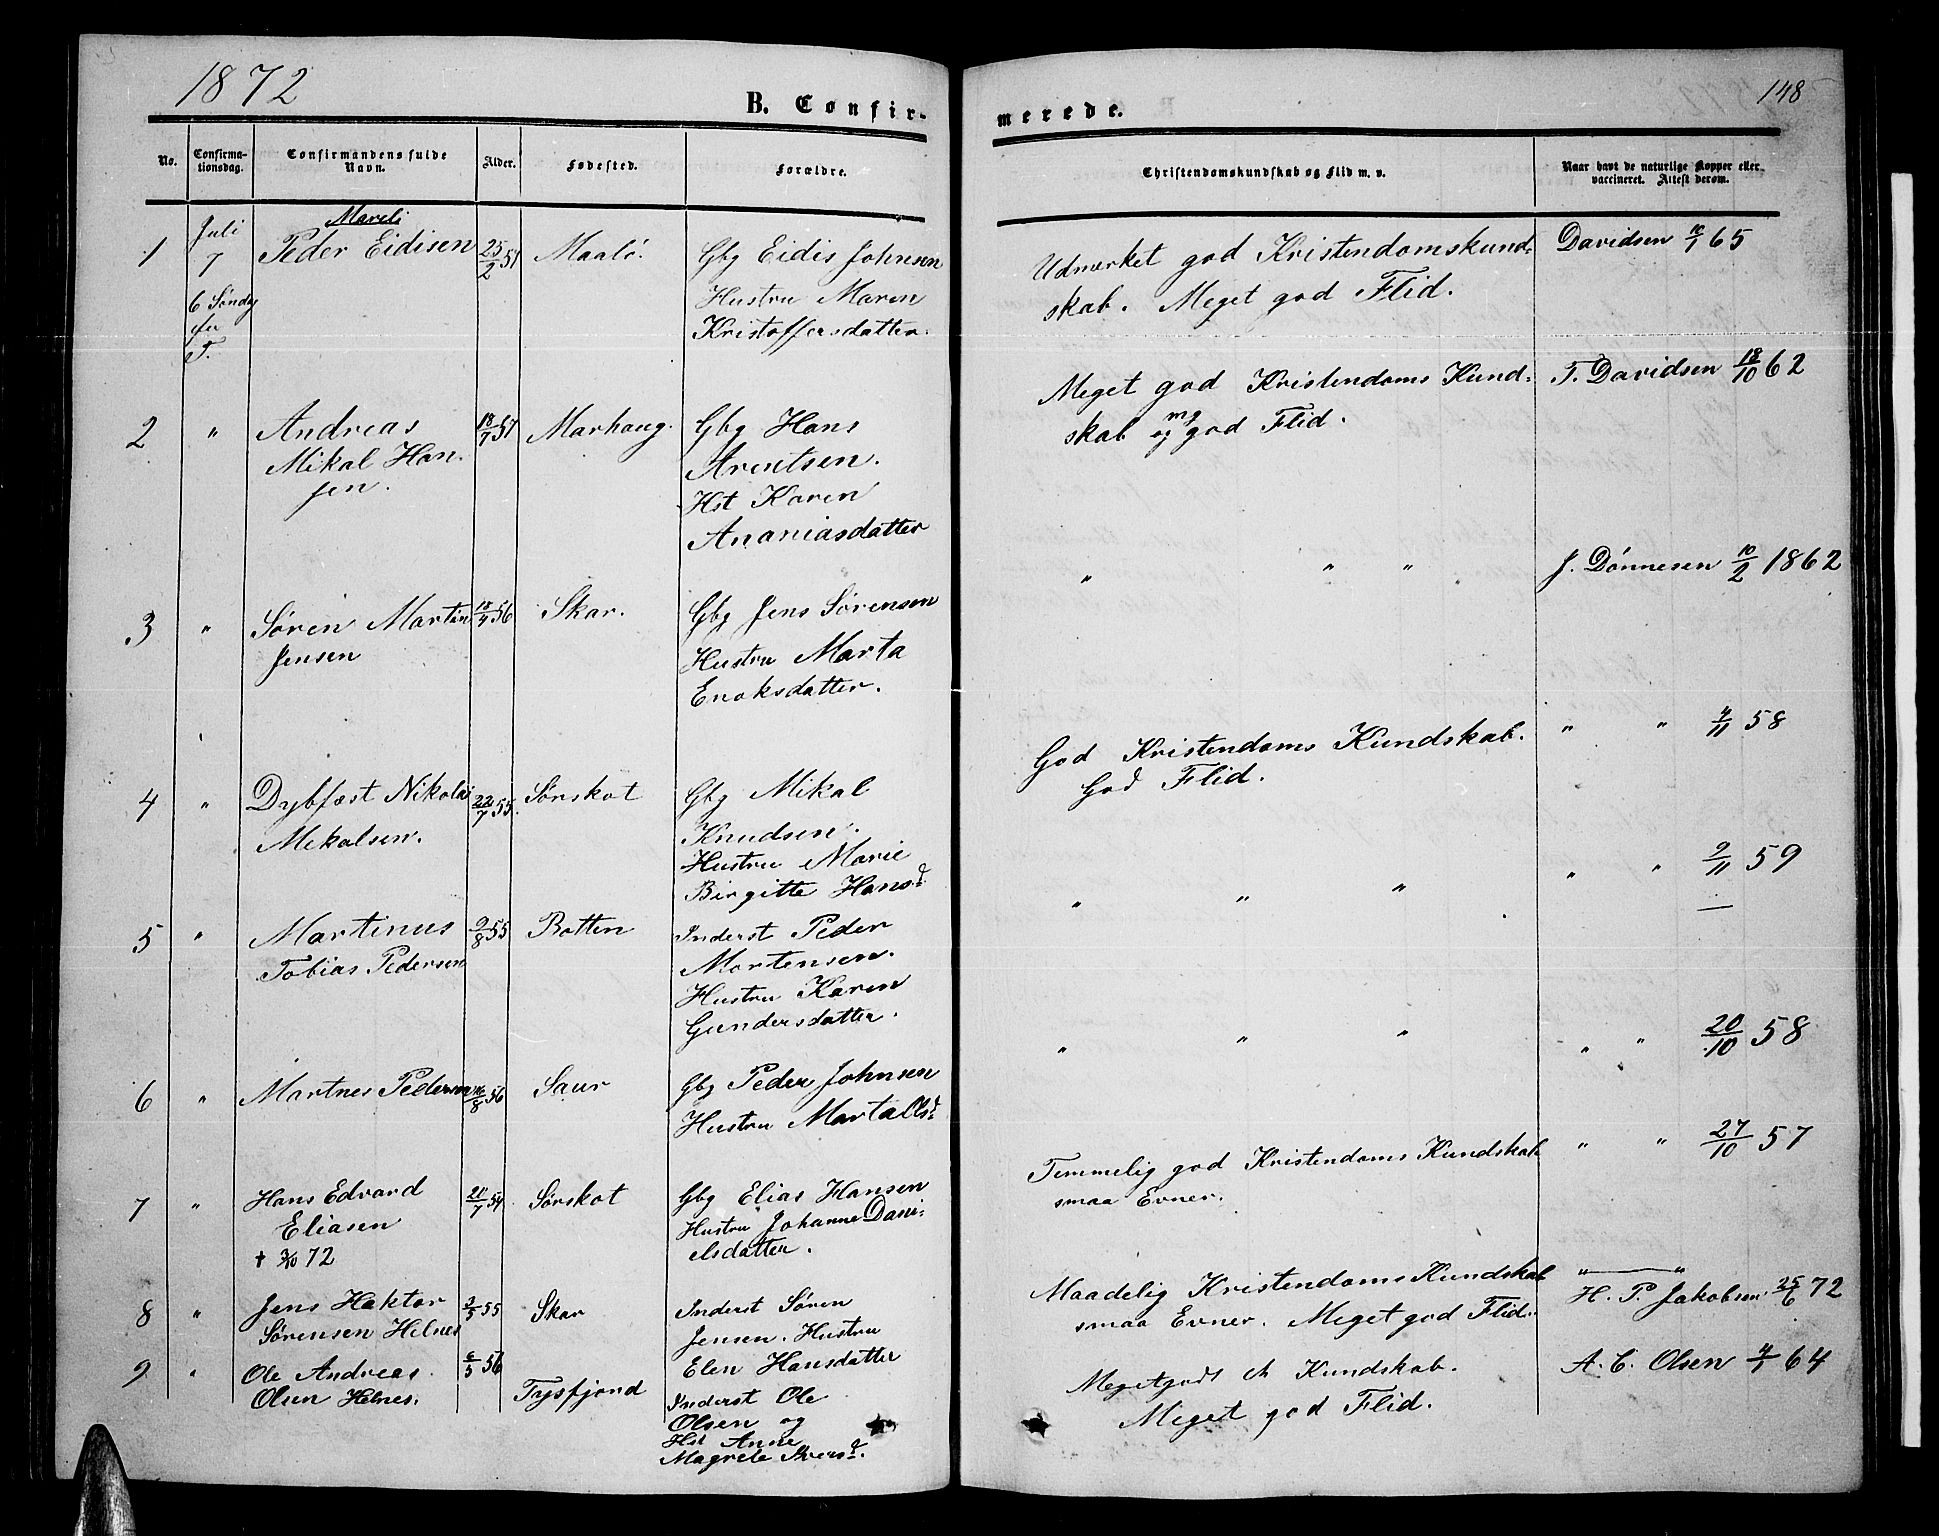 1872
148
B. Confir-
merede.
No.
Confirma-
tionsdag.
Confirmandens fulde
Navn.
Alder.
Fødested.
Forældre.
Christendomskundskab og Flid m. v.
Naar havt de naturlige Kopper eller
vaccineret. Attest derom.
1
Juli
7
6 Søndg
fra
T.
Mareli
Peder Eidisen
25/2 57
Maalö.
Gbg Eidis Johnsen
Hustru Maren
Kristoffersdatter.
Udmerket god Kristendomskund-
skab. Meget god Flid.
Davidsen 10/1 65
2
"
Andreas
Mikal Han-
sen.
18/7 57
Marhaug.
Gbg Hans
Arentsen.
Hst Karen
Ananiasdatter
Meget god Kristendoms Kund-
skab og mg god Flid.
T. Davidsen 18/10 62
3
"
Søren Martin
Jensen
18/4 56
Skar.
Gbg Jens Sørensen
Hustru Marta
Enoksdatter.
" " "
J. Dønnesen 10/2 1862
4
"
Dybfest Nikolai
Mikalsen.
22/7 55
Sørskot
Gbg Mikal
Knudsen.
Hustru Marie
Birgitte Hansd.
God Kristendoms Kundskab.
God Flid.
" " 4/11 58
5
"
Martinus
Tobias Pedersen
9/8 55
Botten
Inderst Peder
Mortensen.
Hustru Karen
Gundersdatter.
" " "
" " 9/11 59
6
"
Martnes Pedersen
26/8 56
Saur
Gbg Peder Johnsen
Hustru Marta Olsd.
" " "
" " 20/10 58
7
"
Hans Edvard
Eliasen
† 3/10 72
Sørskot
Gbg Elias Hansen
Hustru Johanne Dani-
elsdatter.
Temmelig god Kristendoms Kundskab
smaa Evner.
" " 27/10 57
8
"
Jens Hektor
Sørensen Helnes
3/5 55
Skar
Inderst Søren
Jensen. Hustru
Elen Hansdatter
Maadelig Kristendoms Kundskab
smaa Evner. Meget god Flid.
" "
H. P. Jakobsen 25/6 72
9
"
Ole Andreas
Olsen Helnes.
6/5 56
Tysfjord
Inderst Ole
Olsen og
Hst Anne
Magrete
Meget god Kundskab.
Meget god Flid.
A. C. Olsen 4/1 64